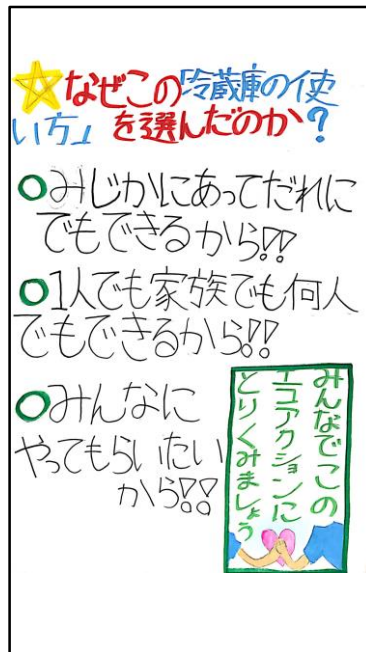 なぜこの「冷蔵庫の使
い方」を選んだのか？
○みじかにあってだれに
でもできるから!!
○1人でも家族でも何人
でもできるから!!
○みんなに
やってもらいたい
から!!
みんなでこの
エコアクションに
とりくみましょう